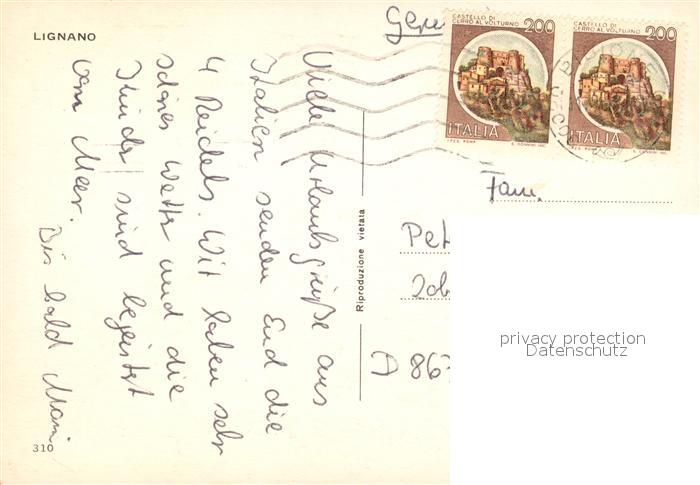 LIGNANO
CASTELLO DI
CERRO AL VOLTURNO 200
ITALIA
CASTELLO DI
CERRO AL VOLTURNO 200
ITALIA
Viele Urlaubsgrüße aus
Italien senden Euch die
4 Reidels. Wir haben sehr
schönes Wetter und die
Kinder sind begeistert
vom Meer.
Bis bald
Riproduzione vietata
Fam.
Pet
A 867
privacy protection
Datenschutz
310